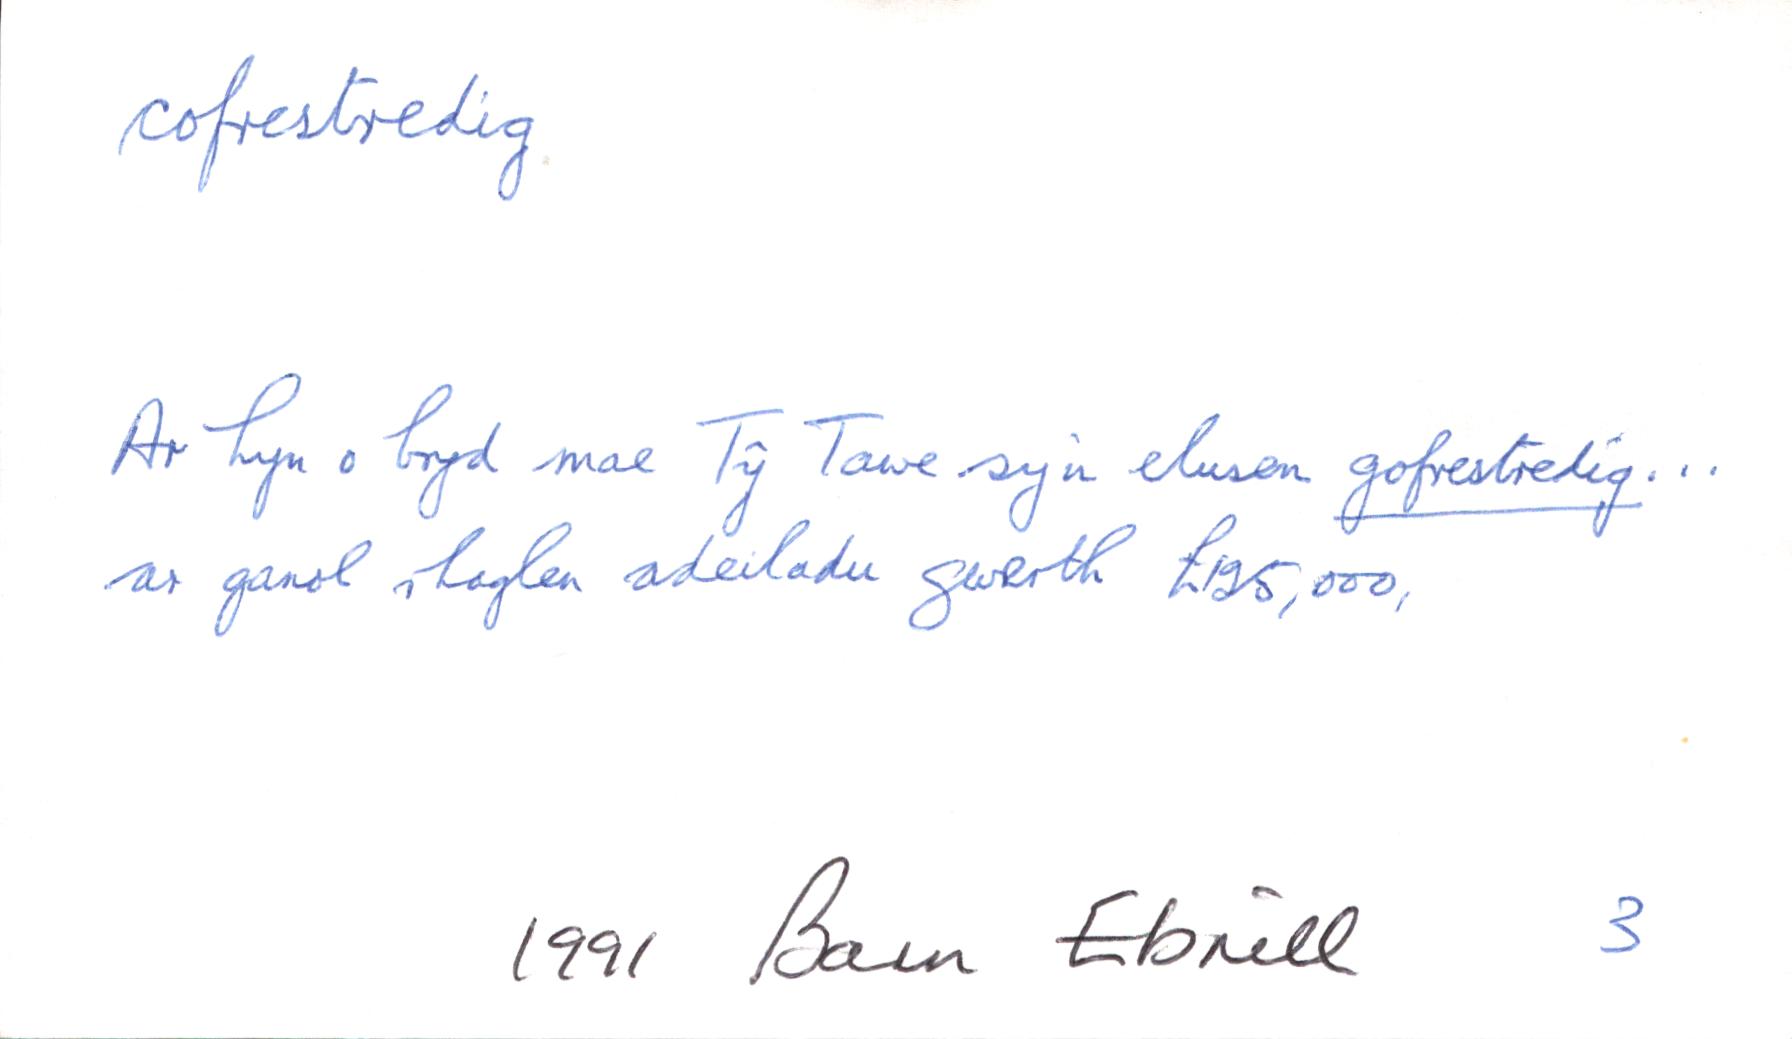 cofrestredig
Ar hyn o bryd mae Tŷ Tawe sy'n elusen gofrestredig...
ar ganol rhaglen adeiladu gwerth £125,000,
1991 Barn Ebrill 3